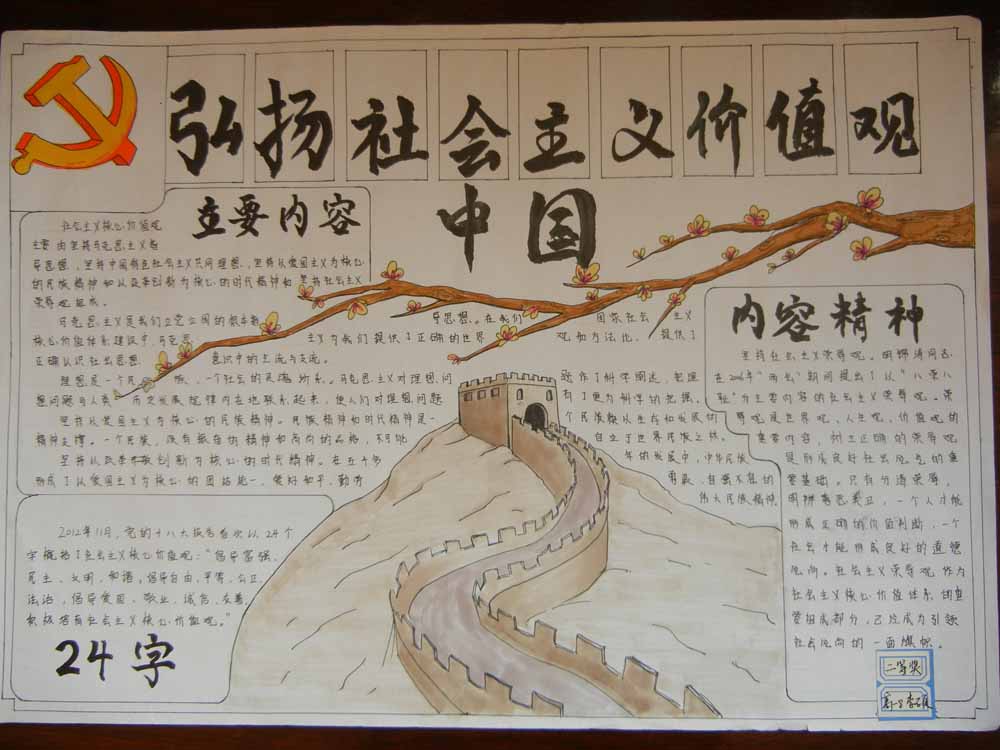 弘扬社会主义价值观
中国
主要内容
社会主义核心价值观
主要内容是马克思主义指
导思想，坚持中国特色社会主义共同理想，坚持以爱国主义为核心
的民族精神和以改革创新为核心的时代精神和坚持社会主义
荣辱观组成。
马克思主义是我们立党立国的根本指
导思想。在我们
国家社会主义
核心价值体系建设中，马克思
主义为我们提供了正确的世界
观和方法论，提供了
正确认识社会思想
意识中的主流与支流。
理想是一个民
族、一个社会的灵魂所系。马克思主义对理想问
题作了科学阐述，把理
想问题与人类
历史发展规律内在地联系起来，使人们对理想问题
有了更为科学的把握。
坚持以爱国主义为核心的民族精神。民族精神和时代精神是一
个民族赖以生存和发展的
精神支撑。一个民族，没有振奋的精神和高尚的品格，不可能
自立于世界民族之林。
坚持以改革创新为核心的时代精神。在五千多
年的发展中，中华民族
形成了以爱国主义为核心的团结统一、爱好和平、勤劳
勇敢、自强不息的
伟大民族精神
2012年11月，党的十八大报告首次以24个
字概括了社会主义核心价值观："倡导富强、
民主、文明、和谐，倡导自由、平等、公正、
法治，倡导爱国、敬业、诚信、友善，
积极培育社会主义核心价值观。"
24字
内容精神
坚持社会主义荣辱观。胡锦涛同志
在2006年"两会"期间提出了以"八荣八
耻"为主要内容的社会主义荣辱观。荣
辱观是世界观、人生观、价值观的
重要内容，树立正确的荣辱观
是形成良好社会风气的重
要基础。只有分清荣辱，
明辨善恶美丑，一个人才能
形成正确的价值判断，一个
社会才能形成良好的道德
风尚。社会主义荣辱观作为
社会主义核心价值体系的重
要组成部分，已经成为引领
社会风尚的一面旗帜。
二等奖